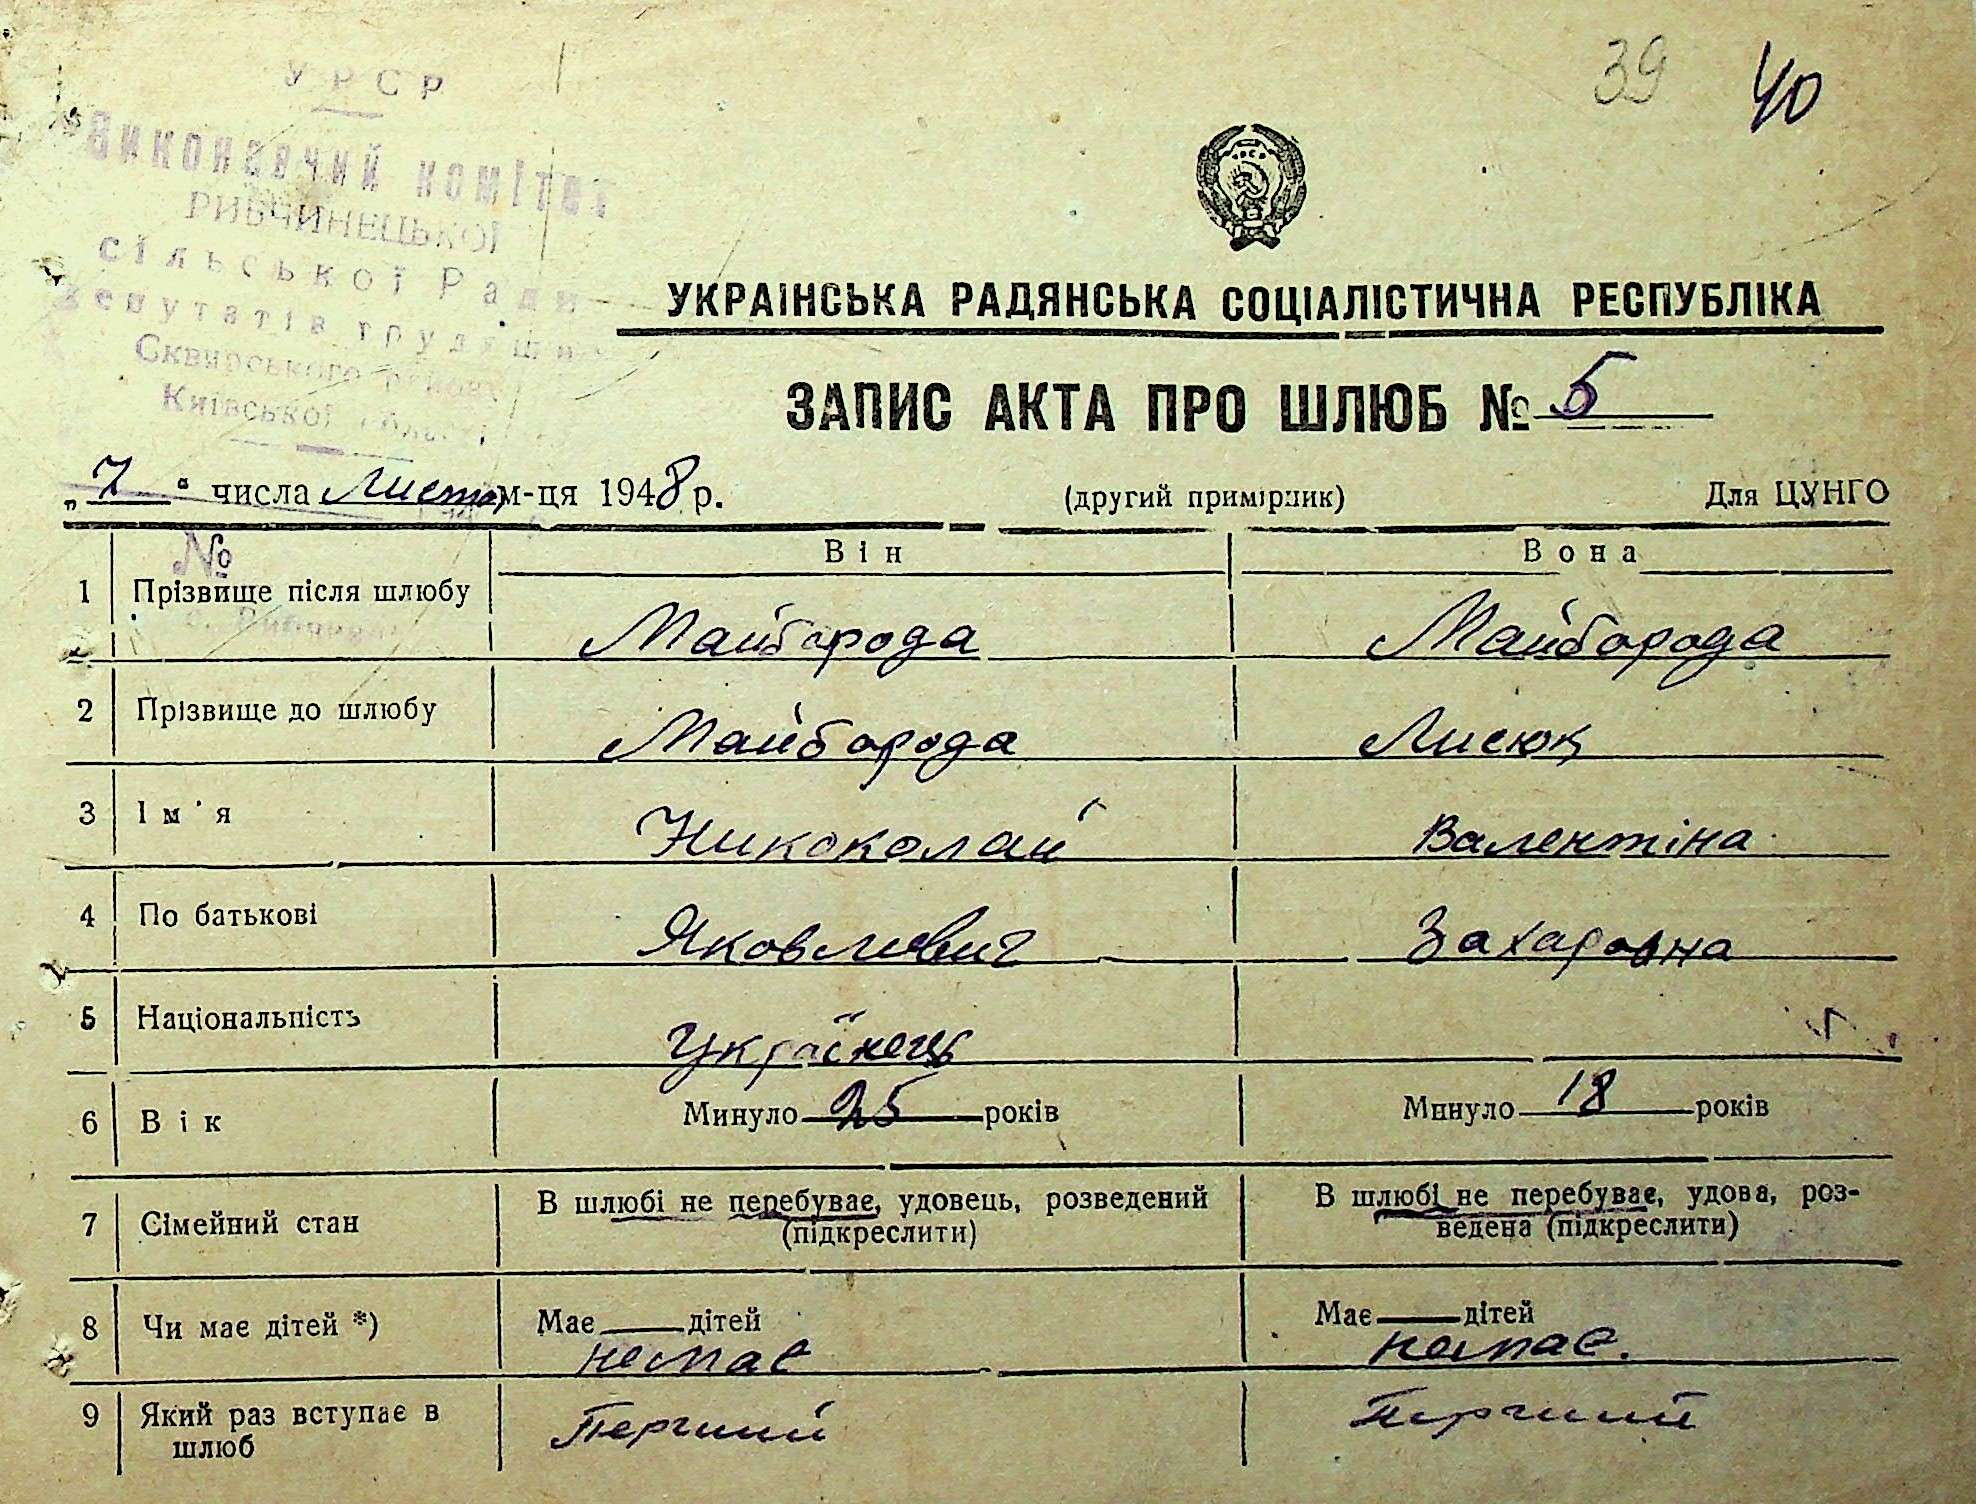 39 40
УРСР
Виконавчий комітет
РИБЧИНЕЦЬКОЇ
сільської Ради
депутатів трудящих
Сквирського району
Київської області
УКРАЇНСЬКА РАДЯНСЬКА СОЦІАЛІСТИЧНА РЕСПУБЛІКА
ЗАПИС АКТА ПРО ШЛЮБ № 5
„7“ числа Листоп. м-ця 1948 р. (другий примірник) Для ЦУНГО
№
Він Вона
1 Прізвище після шлюбу Майборода Майборода
2 Прізвище до шлюбу Майборода Лисюк
3 Ім'я Никоколай Валентіна
4 По батькові Яковлевич Захаровна
5 Національність Українець
6 Вік Минуло 25 років Минуло 18 років
7 Сімейний стан В шлюбі не перебуває, удовець, розведений В шлюбі не перебуває, удова, роз-
(підкреслити) ведена (підкреслити)
8 Чи має дітей *) Має дітей Має дітей
немає немає.
9 Який раз вступає в Перший Перший
шлюб